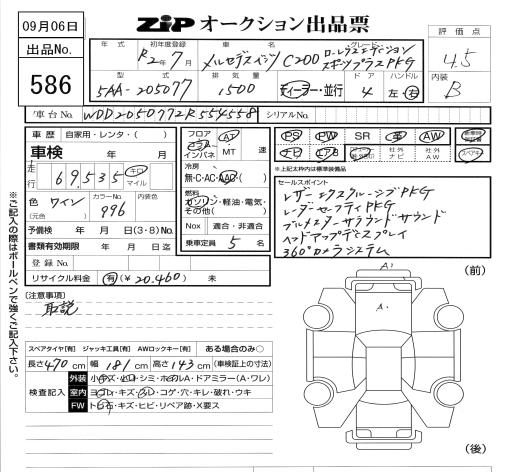 09月06日
ZIP オークション出品票
出品No.
586
年式 初年度登録 車名 グレード
R2年7月 メルセデスベンツ C200 ローレウスエディション スポーツプラスPKG
型式 排気量 ドア ハンドル
5AA-205077 1500 ディーラー・並行 4 左・右
評価点
4.5
内装
B
車台No. WDD2050772R554558 シリアルNo.
車歴 自家用・レンタ・( )
車検 年 月
走行 69,535 キロ マイル
色 ワイン カラーNo. 996 内装色
(元色)
予備検 年 月 日(3・8)No.
書類有効期限 年 月 日迄
登録No.
リサイクル料金 有(¥20,460) 無
フロア コラム インパネ AT MT 速
無・C・AC・AAC
燃料
ガソリン・軽油・電気・その他( )
Nox 適合・非適合
乗車定員 5 名
PS PW SR 革 AW
ナビ エアB 社外ナビ 社外AW
スペアキー
※上記太枠内は標準装備品
セールスポイント
レザーエクスクルーシブPKG
レーダーセーフティPKG
ブルメスターサラウンドサウンド
ヘッドアップディスプレイ
360°カメラシステム
※ご記入の際はボールペンで強くご記入下さい。
(注意事項)
取説
スペアタイヤ[有] ジャッキ工具[有] AWロックキー[有] ある場合のみ○
長さ 470 cm 幅 181 cm 高さ 143 cm (車検証上の寸法)
検査記入
外装 小キズ・凹・シミ・ホイルA・ドアミラー(A・ワレ)
室内 ヨゴレ・キズ・スレ・コゲ・穴・キレ・破れ・ウキ
FW ト石・キズ・ヒビ・リペア跡・X要ス
(前)
A1
A.
(後)